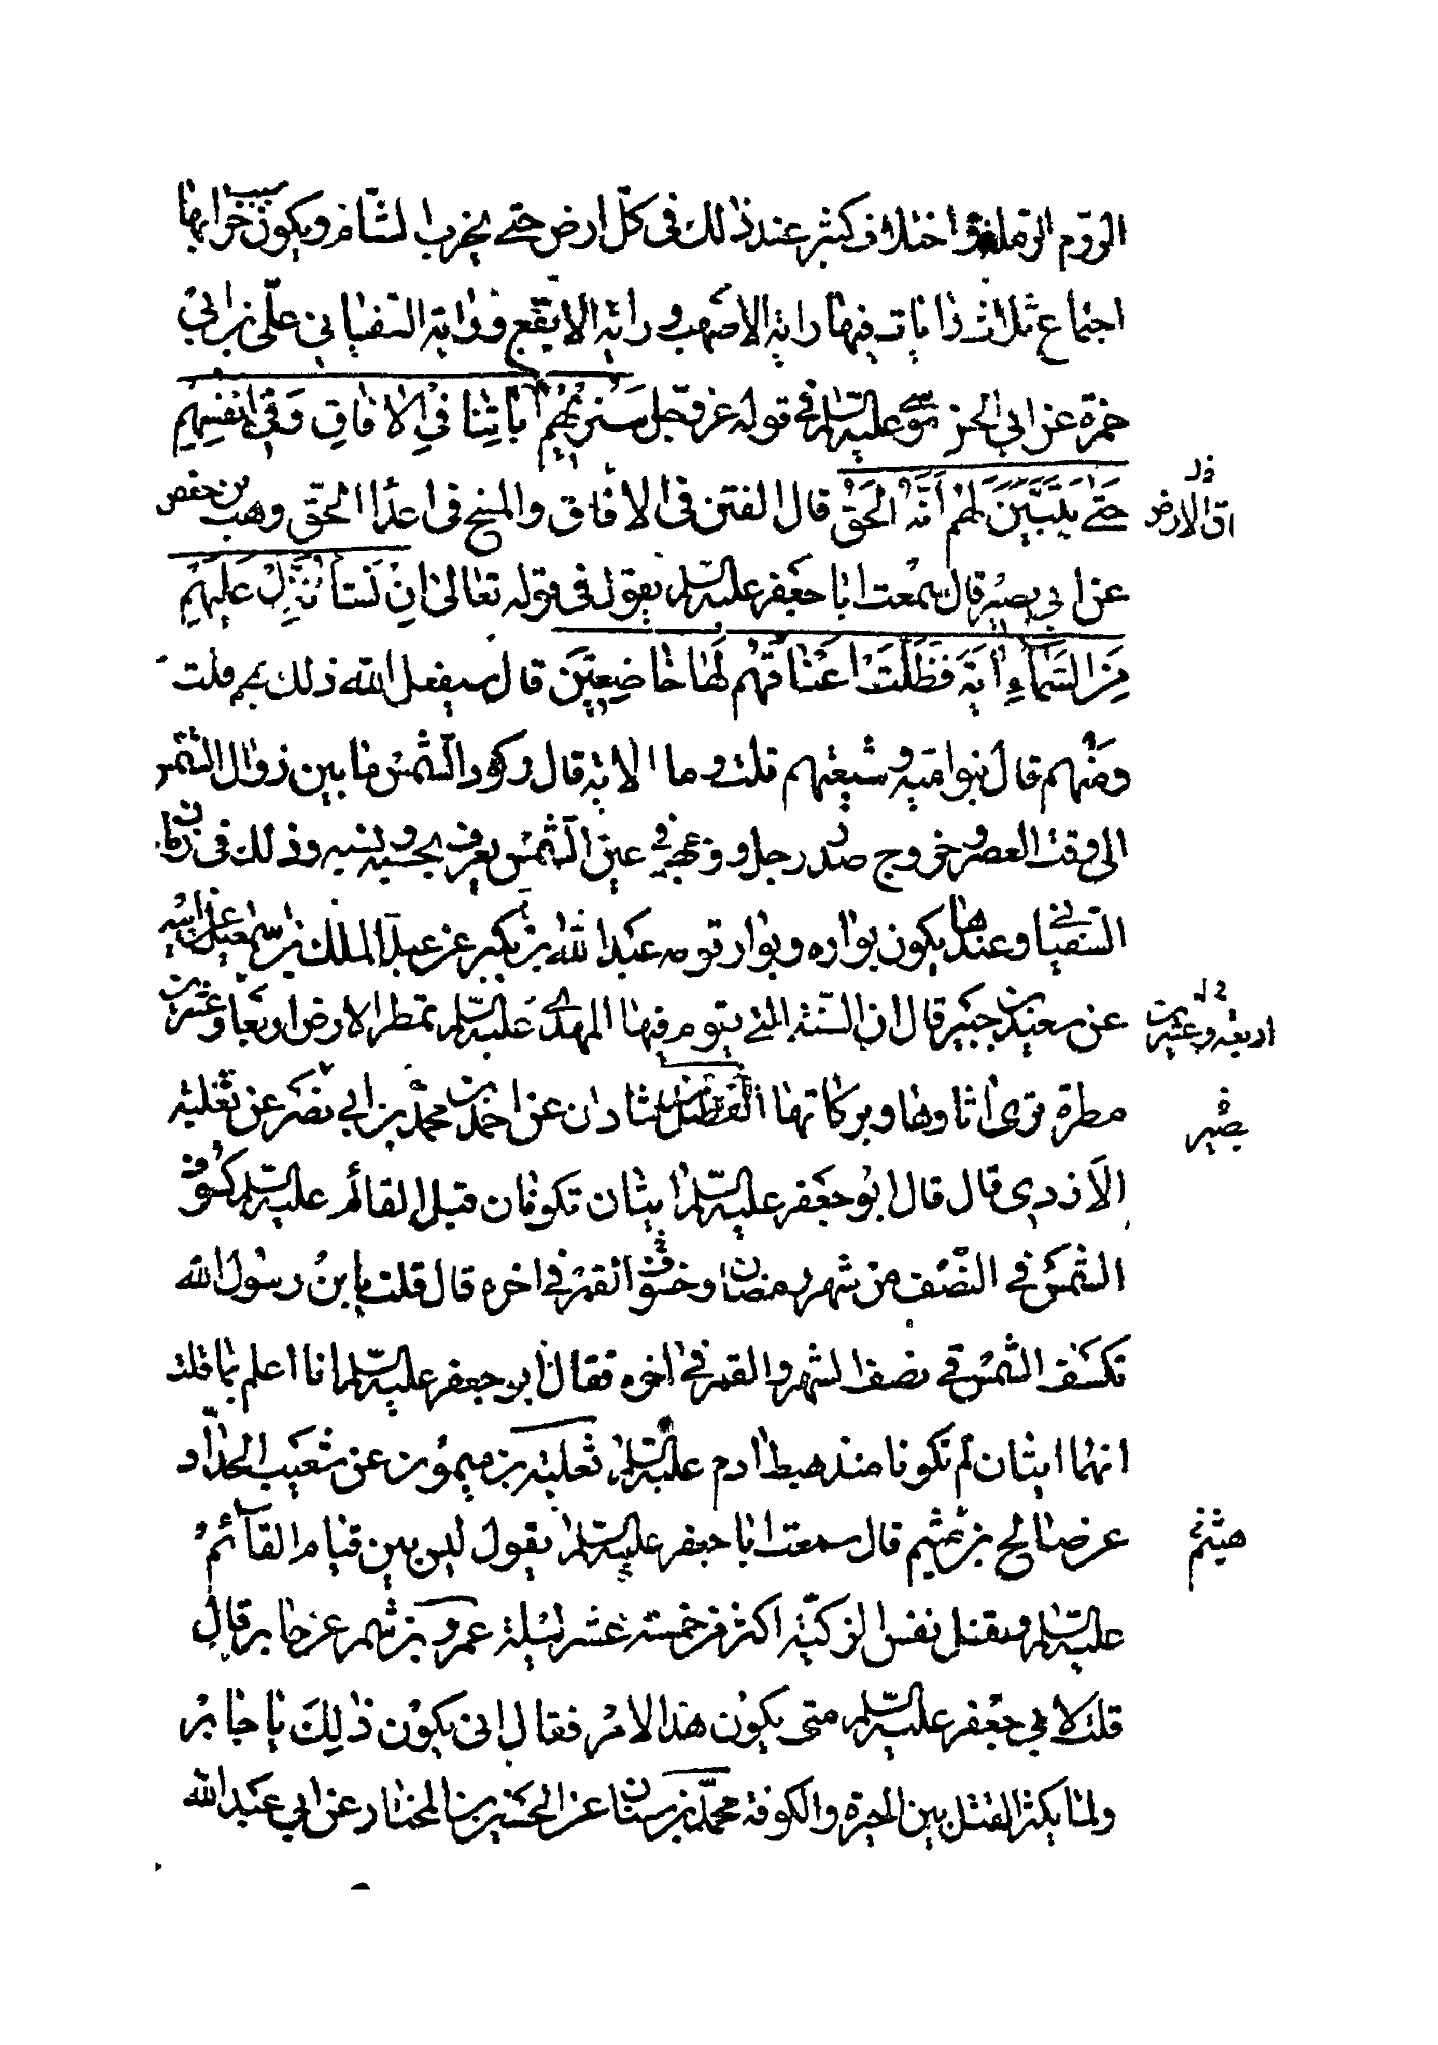 الروم الرملة واختلاف كثير عند ذالك فى كل ارض حتى يخرب الشام ويكون سبب خرابها
اجتماع ثلاث رايات فيها راية الاصهب و راية الابقع وراية السفيانى على بن ابى
حمزة عن ابي الحسن موسى عليه السلم في قوله عز وجل سَنُرِيهِمْ آيَاتِنَا فِي الآفَاقِ وَفِي أَنْفُسِهِمْ
حَتّى يَتَبَيَّنَ لَهُمْ أَنَّهُ الحَقُّ قال الفتن فى الافاق والمسخ فى اعداء الحق وهب بن حفص
اق الارض
عن ابي بصير قال سمعت ابا جعفر عليه السلم يقول فى قوله تعالى اِنْ نَشَأْ نُنَزِّلْ عَلَيْهِمْ
مِنَ السَّمَآءِ ايَةً فَظَلَّتْ اَعْنَاقُهُمْ لَهَا خَاضِعِينَ قال سيفعل الله ذلك بهم قلت
ومنهم قال بنو امية وشيعتهم قلت وما الاية قال ركود الشمس ما بين زوال الشمس
الى وقت العصر وخروج صدر رجل و وجهه في عين الشمس يعرف بحسبه ونسبه وذلك فى زمان
السفياني وعندها يكون بواره وبوار قومه عبد الله بن بكير عن عبد الملك بن اسمعيل عن ابيه
عن سعيد بن جبير قال ان السنة التي يقوم فيها المهدي عليه السلم تمطر الارض اربعا وعشرين
اربعة وعشرين
مطرة ترى اثارها وبركاتها الفضل بن شاذان عن احمد بن محمد بن ابي نصر عن ثعلبة
بصير
الازدي قال قال ابو جعفر عليه السلم ايتان تكونان قبل القائم عليه السلم كسوف
الشمس في النصف من شهر رمضان وخسوف القمر في اخره قال قلت يا بن رسول الله
تكسف الشمس في نصف الشهر والقمر في اخره فقال ابو جعفر عليه السلم انا اعلم بما قلت
انهما ايتان لم تكونا منذ هبط ادم عليه السلم ثعلبة بن ميمون عن شعيب الحداد
عن صالح بن ميثم قال سمعت ابا جعفر عليه السلم يقول ليس بين قيام القآئم
هيثم
عليه السلم وقتل نفس الزكية اكثر من خمسة عشر ليلة عمرو بن شمر عن جابر قال
قلت لابي جعفر عليه السلم متى يكون هذا الامر فقال انى يكون ذلك يا جابر
ولما يكثر القتل بين الحيرة والكوفة محمد بن سنان عن الحسين بن المختار عن ابي عبد الله